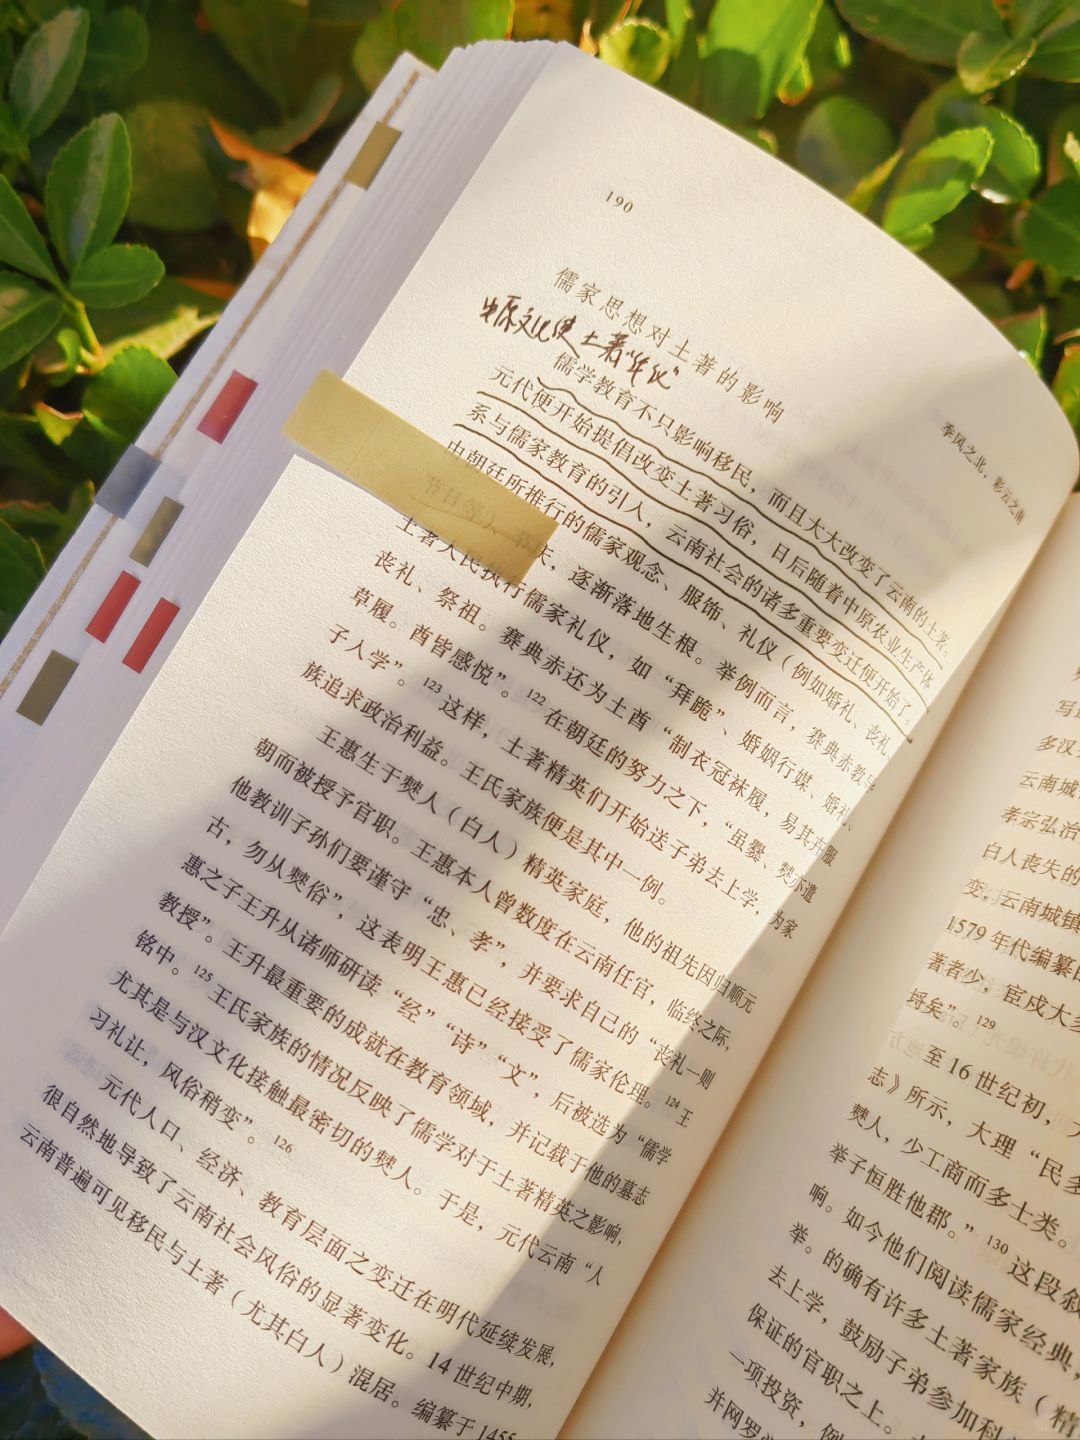 190
季风之北，彩云之南
儒家思想对土著的影响
中原文化使土著"华化"
儒学教育不只影响移民，而且大大改变了云南的土著。
元代便开始提倡改变土著习俗，日后随着中原农业生产体
系与儒家教育的引入，云南社会的诸多重要变迁便开始了。
由朝廷所推行的儒家观念、服饰、礼仪（例如婚礼、丧礼、
节日等
失，逐渐落地生根。举例而言，赛典赤教导
土著人民执行儒家礼仪，如“拜跪”、婚姻行媒、婚礼、
丧礼、祭祖。赛典赤还为土酋“制衣冠袜履，易其卉服
草履。酋皆感悦”。122 在朝廷的努力之下，“虽爨、僰亦遣
子入学”。123 这样，土著精英们开始送子弟去上学，为家
族追求政治利益。王氏家族便是其中一例。
王惠生于僰人（白人）精英家庭，他的祖先因归顺元
朝而被授予官职。王惠本人曾数度在云南任官，临终之际，
他教训子孙们要谨守“忠、孝”，并要求自己的“丧礼一则
古，勿从僰俗”，这表明王惠已经接受了儒家伦理。124 王
惠之子王升从诸师研读“经”“诗”“文”，后被选为“儒学
教授”。王升最重要的成就在教育领域，并记载于他的墓志
铭中。125 王氏家族的情况反映了儒学对于土著精英之影响，
尤其是与汉文化接触最密切的僰人。于是，元代云南“人
习礼让，风俗稍变”。126
元代人口、经济、教育层面之变迁在明代延续发展，
很自然地导致了云南社会风俗的显著变化。14 世纪中期，
云南普遍可见移民与土著（尤其白人）混居。编纂于1455
写
多汉
云南城
孝宗弘治
白人丧失的
变，云南城镇
1579 年代编纂
著者少，宦戍大多
埒矣”。129
至 16 世纪初，
志》所示，大理“民多
僰人，少工商而多士类。
举子恒胜他郡。”130 这段叙
响。如今他们阅读儒家经典，
举。的确有许多土著家族（精
去上学，鼓励子弟参加科
保证的官职之上。
一项投资，例
并网罗